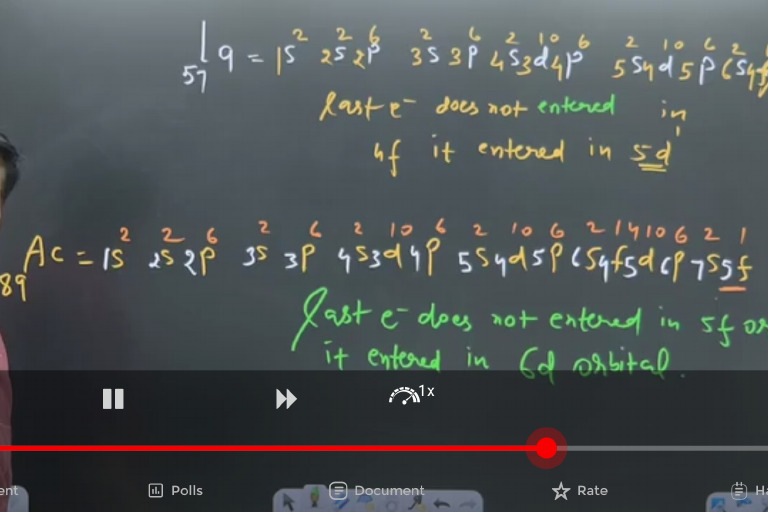 57 la = 1s² 2s² 2p⁶ 3s² 3p⁶ 4s² 3d¹⁰ 4p⁶ 5s² 4d¹⁰ 5p⁶ 6s² 4f
last e⁻ does not entered in
4f it entered in 5d¹
89 Ac = 1s² 2s² 2p⁶ 3s² 3p⁶ 4s² 3d¹⁰ 4p⁶ 5s² 4d¹⁰ 5p⁶ 6s² 4f¹⁴ 5d¹⁰ 6p⁶ 7s² 5f¹
last e⁻ does not entered in 5f or
it entered in 6d orbital.
1x
ent Polls Document Rate Ha